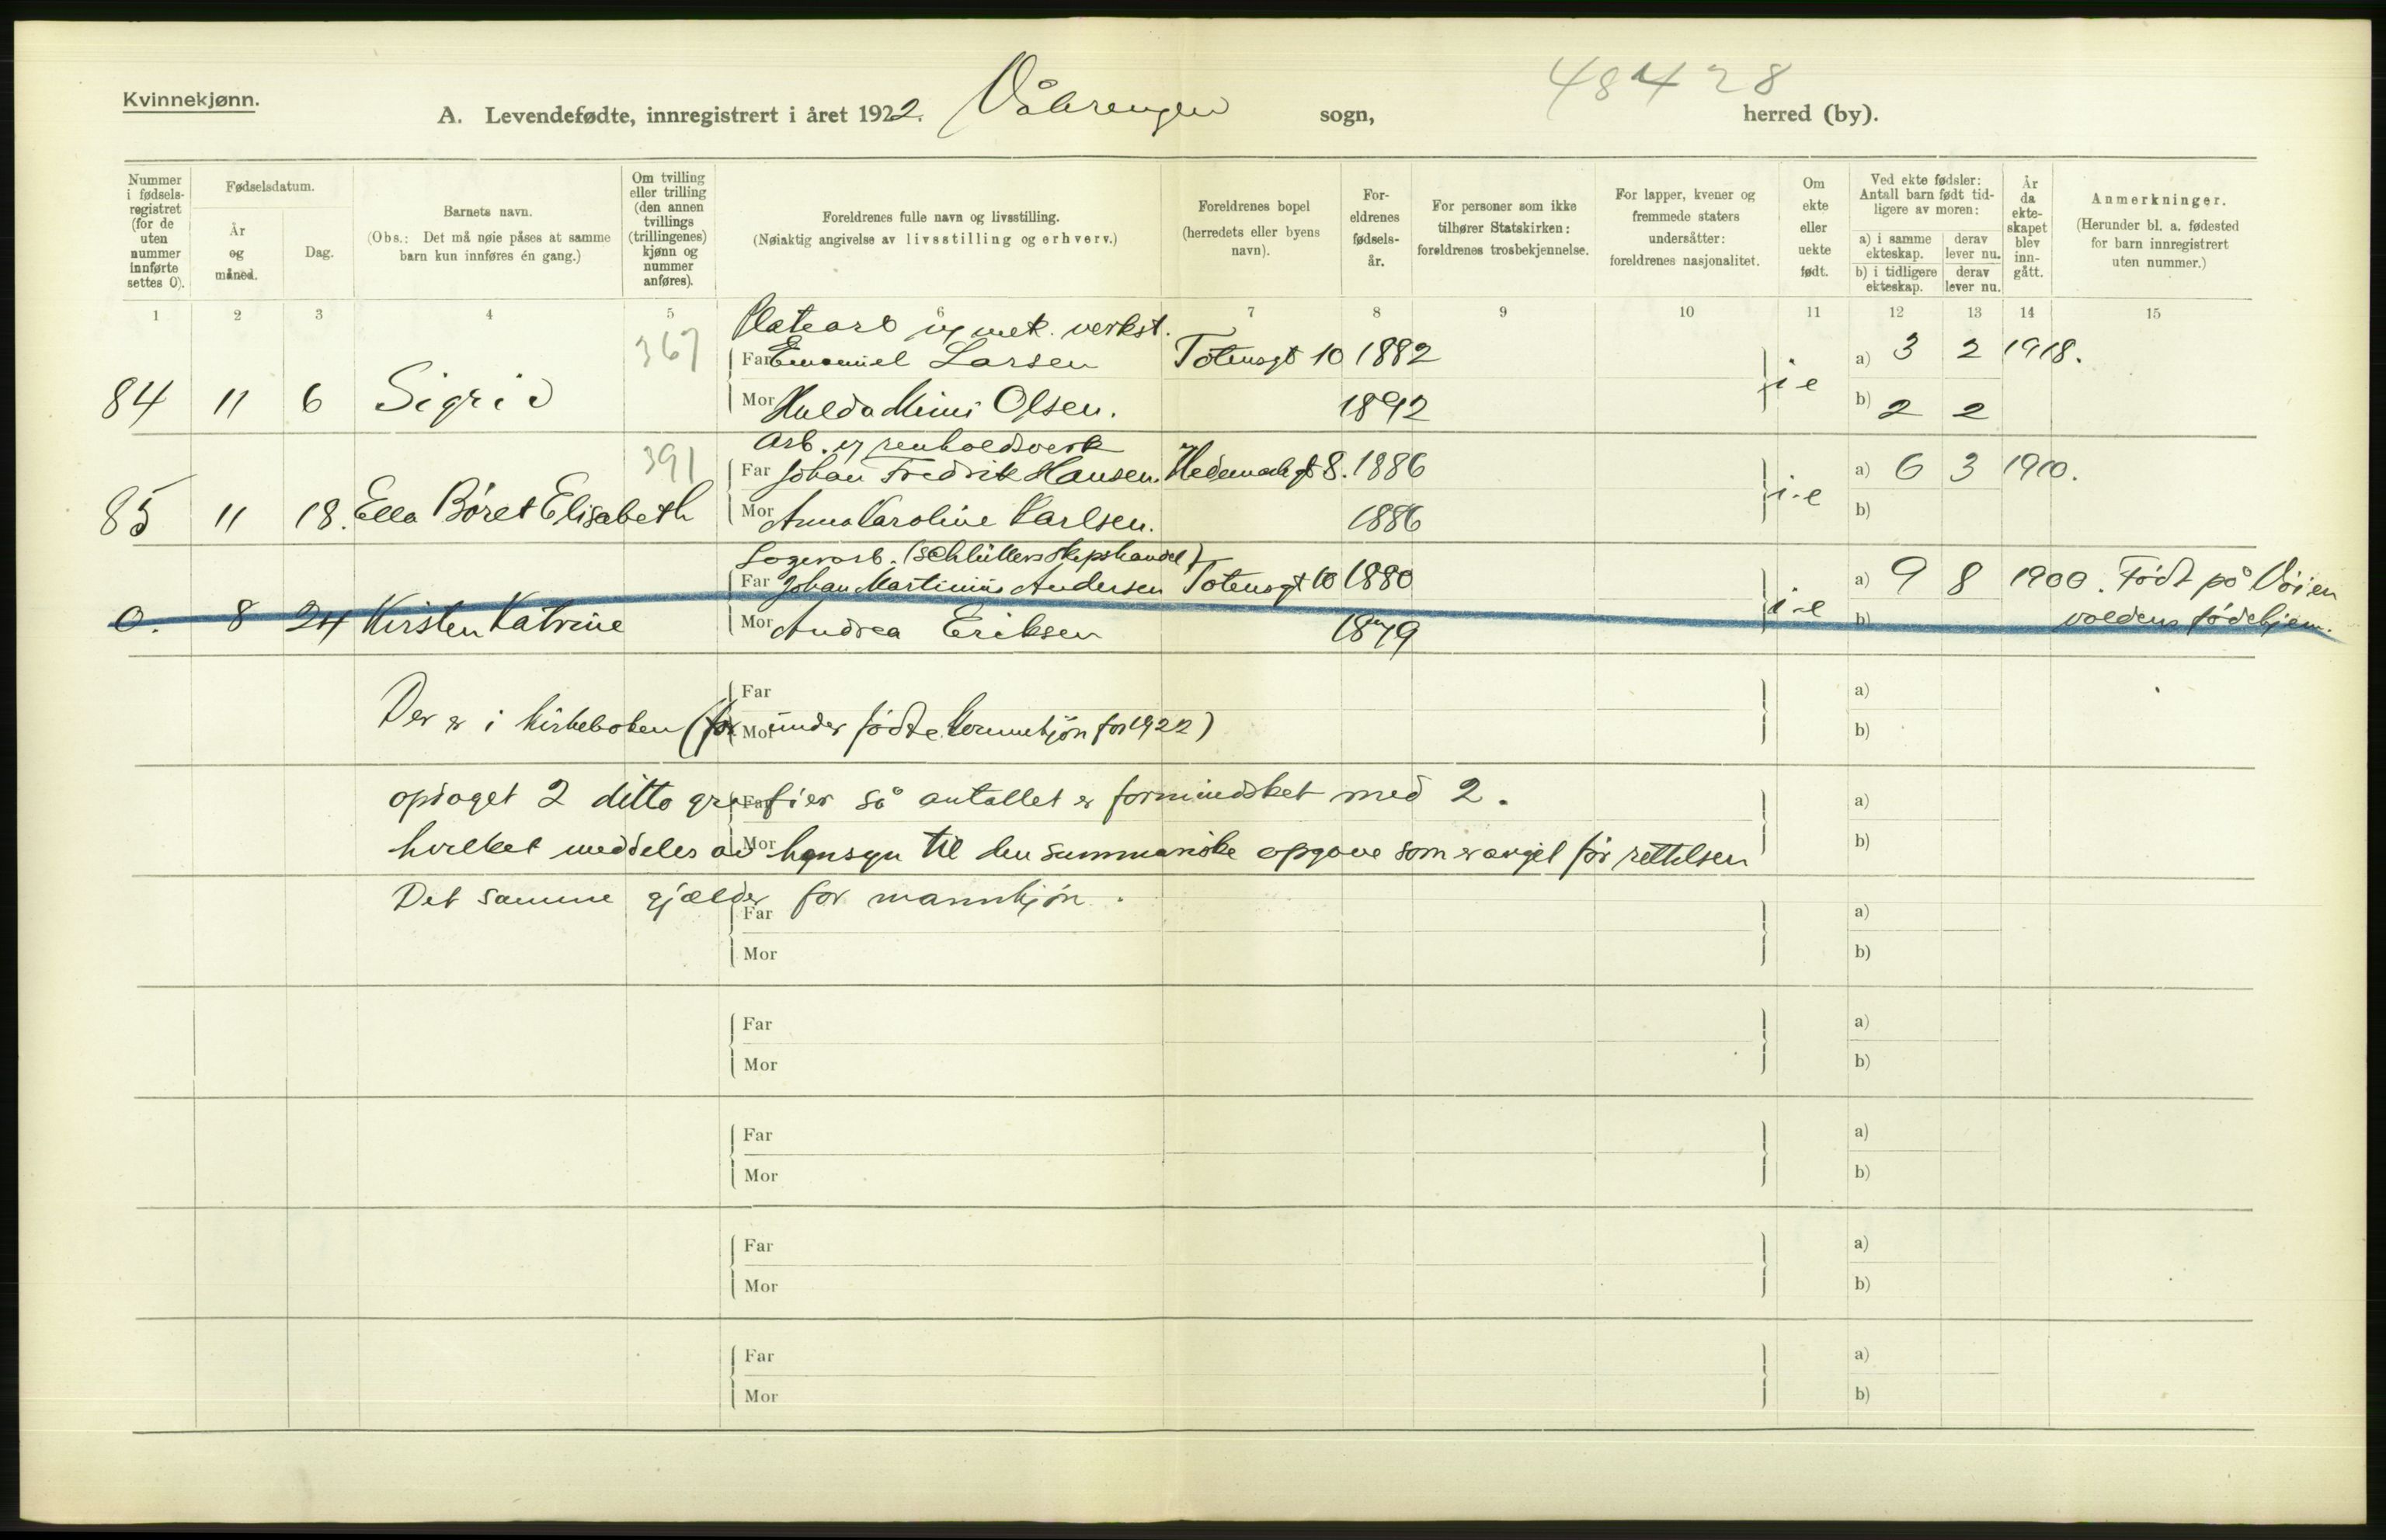 Kvinnekjønn.
A. Levendefødte, innregistrert i året 1922. Vålerengen sogn, herred (by).
48428
Nummer i fødselsregistret (for de uten nummer innførte settes 0).
Fødselsdatum.
År og måned.
Dag.
Barnets navn.
(Obs.: Det må nøie påses at samme barn kun innføres én gang.)
Om tvilling eller trilling (den annen tvillings (trillingenes) kjønn og nummer anføres).
Foreldrenes fulle navn og livsstilling.
(Nøiaktig angivelse av livsstilling og erhverv.)
Foreldrenes bopel (herredets eller byens navn).
Foreldrenes fødselsår.
For personer som ikke tilhører Statskirken: foreldrenes trosbekjennelse.
For lapper, kvener og fremmede staters undersåtter: foreldrenes nasjonalitet.
Om ekte eller uekte født.
Ved ekte fødsler: Antall barn født tidligere av moren:
a) i samme ekteskap.
derav lever nu.
b) i tidligere ekteskap.
derav lever nu.
År da ekteskapet blev inngått.
Anmerkninger.
(Herunder bl. a. fødested for barn innregistrert uten nummer.)
1 2 3 4 5 6 7 8 9 10 11 12 13 14 15
Platearb mek. verkst.
367 Far Emanuel Larsen Totensgt 10 1882 a) 3 2 1918.
84 11 6 Sigrid Mor Hulda Mimi Olsen. 1892 i-e b) 2 2
Arb. renholdsverk
391 Far Johan Fredrik Hansen. Hedemarksgt 8. 1886 a) 6 3 1910.
85 11 18. Ella Børet Elisabeth Mor Anna Karoline Karlsen. 1886 i-e b)
Lagerarb. (Schlütters skipshandel)
Far Johan Martinius Andersen Totensgt 10 1880 a) 9 8 1900. Født på Vøien
0. 8 24 Kirsten Katrine Mor Andrea Eriksen 1879 i-e b) voldens fødehjem.
Far a)
Der er i kirkeboken (for under fødte kvinnekjøn for 1922)
Mor b)
opdaget 2 ditto grafier så antallet er formindsket med 2.
Far a)
hvilket meddeles av hensyn til den summariske opgave som er avgit før rettelsen
Mor b)
Det samme gjælder for mannkjøn.
Far a)
Mor b)
Far a)
Mor b)
Far a)
Mor b)
Far a)
Mor b)
Far a)
Mor b)